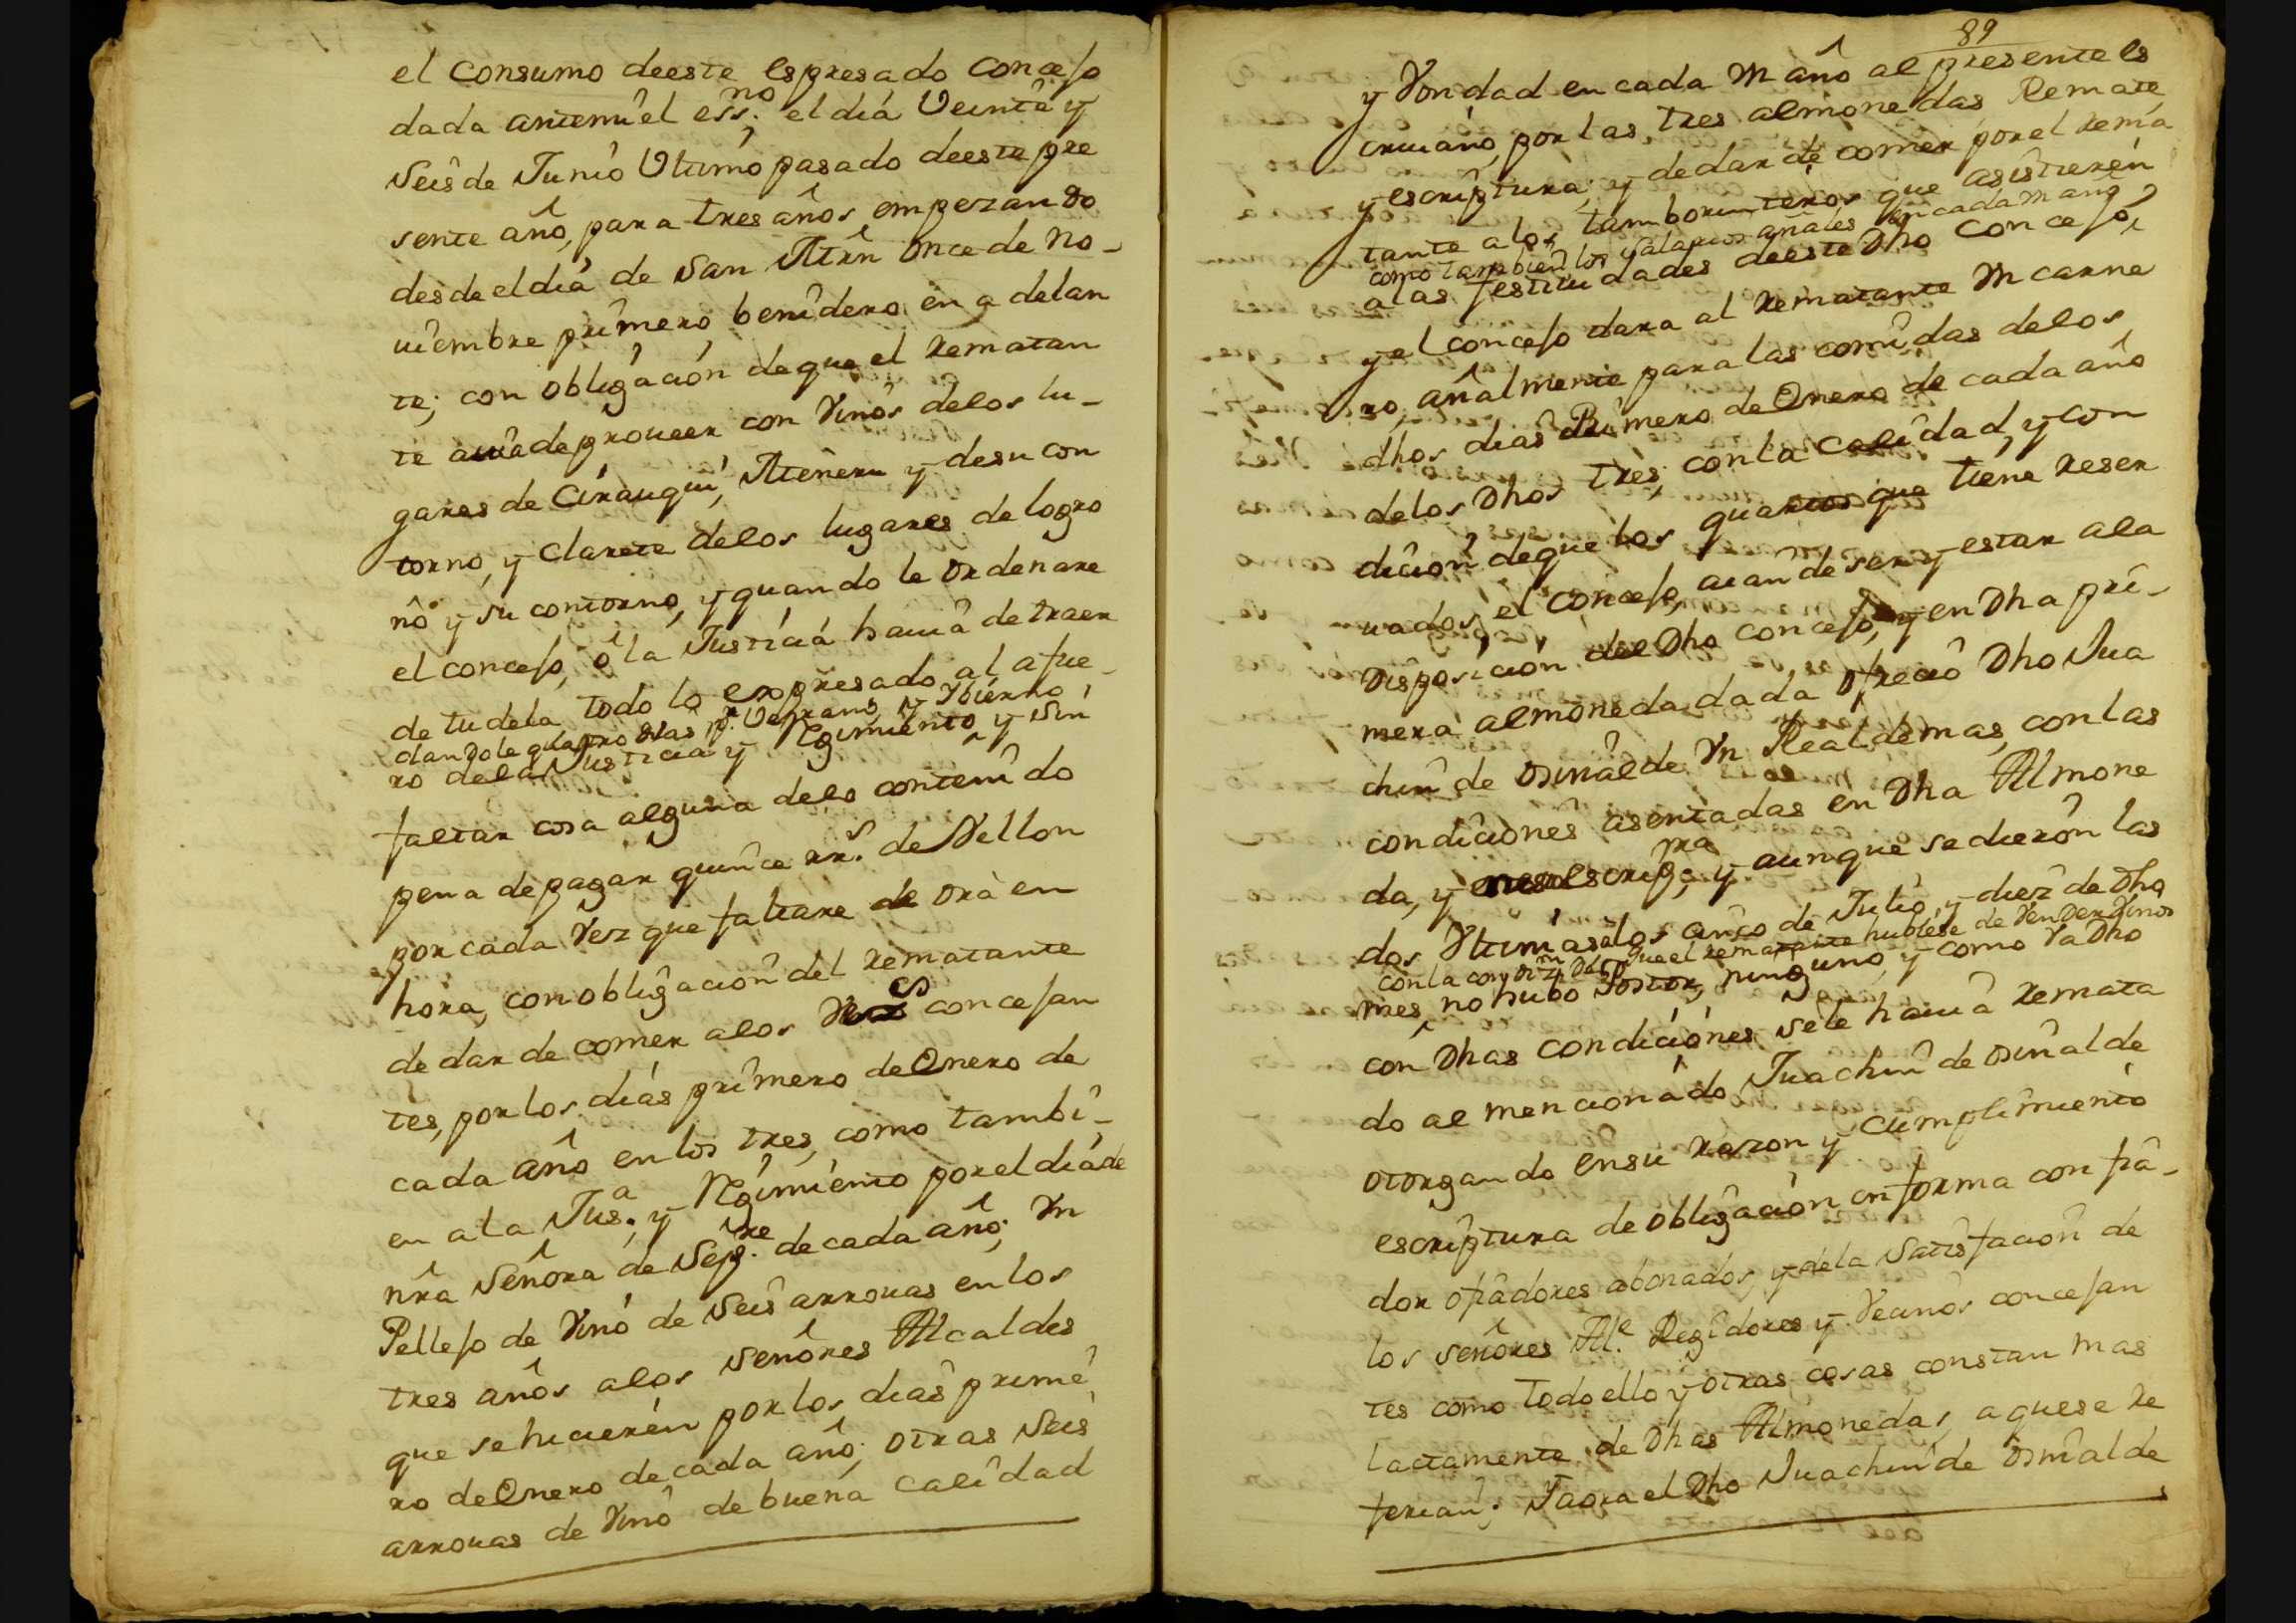 el Consumo deeste espresado Concejo
dada antemi el ess.no el dia Veinte y
Seis de Junio Vltimo pasado deeste pre
sente año, para tres años empezando
desde el dia de San Mrñ once de No-
uiembre primero, benidero en adelan
te; con obligacion de que el rematan
te auia de proueer con Vinos delos lu-
gares de Cirauqui, Mañeru y desu con
torno, y Clarete delos lugares de logro
ño y su contorno, y quando le ordenare
el concejo, ô la Justicia hauia de traer
de tudela todo lo expresado al a fue-
dandole quatro dias p.r Verano, y Ybierno
ro dela Justicia y Rgimiento, y sin
faltar cosa alguna delo contenido
pena de pagar quince rr.s de Vellon
por cada Vez que faltare de ora en
hora, con obligacion del rematante
de dar de comer alos Vzs concejan
tes, por los dias primero de Enero de
cada año en los tres, como tambi-
en ala Jus.a y Rgimiento por el dia de
nra Señora de Sep.re de cada año; Vn
Pellejo de Vino de Seis arrouas en los
tres años alos Señores Alcaldes
que se hicieren por los dias prime
ro de Enero de cada año; otras Seis
arrouas de Vino de buena Calidad
89
y Vondad en cada Vn año al presente es
criuano, por las tres almonedas Remate
y escriptura; y de dar de comer por el rema
tante a los tamborinteros que asistieren
como tambien los salarios añales en cada Vn año
a las festiuidades deeste Dho Concejo,
y el concejo dara al rematante Vn carne
ro, añalmente para las comidas delos
dhos dias Primero de Enero de cada año
delos Dhos tres; con la calidad, y con
dicion de que los quartos que tiene reser
uados el concejo, aian de ser y estar ala
Disposicion del Dho concejo, y en Dha pri-
mera almoneda dada ofrecio Dho Jua
chin de Osinalde Vn Real de mas, con las
condiciones asentadas en Dha Almone
da, y escrip.ra, y aunque se dieron las
dos Vltimas alos cinco de Julio, y diez de Dho
con la con que el rematante hubiese de Vender Vinos
mes, no hubo Postor, ninguno, y como Va Dho
con Dhas condiciones se le hauia remata
do al mencionado Juachin de Osinalde
otorgando en su razon y cumplimiento
escriptura de obligacion en forma con fia-
dor o fiadores abonados, y dela Satisfacion de
los señores Al.e Regidores y Vecinos concejan
tes como todo ello y otras cosas constan mas
lactamente de Dhas Almonedas, a que se re
ferian; Y aora el Dho Juachin de Osinalde